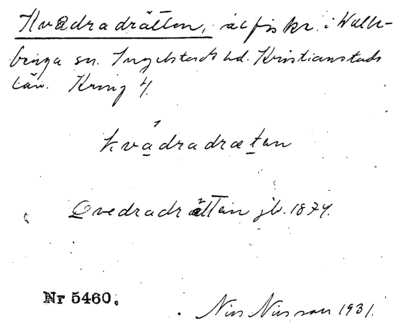 Kvadradrätten, ålfiskr. i Vall-
bnga sn. Ingelstads hd. Kristianstads
län. Kring 4.
kvadradrætan
Qvedradrättan jb. 1874.
Nr 5460.
Nils Nilsson 1931.